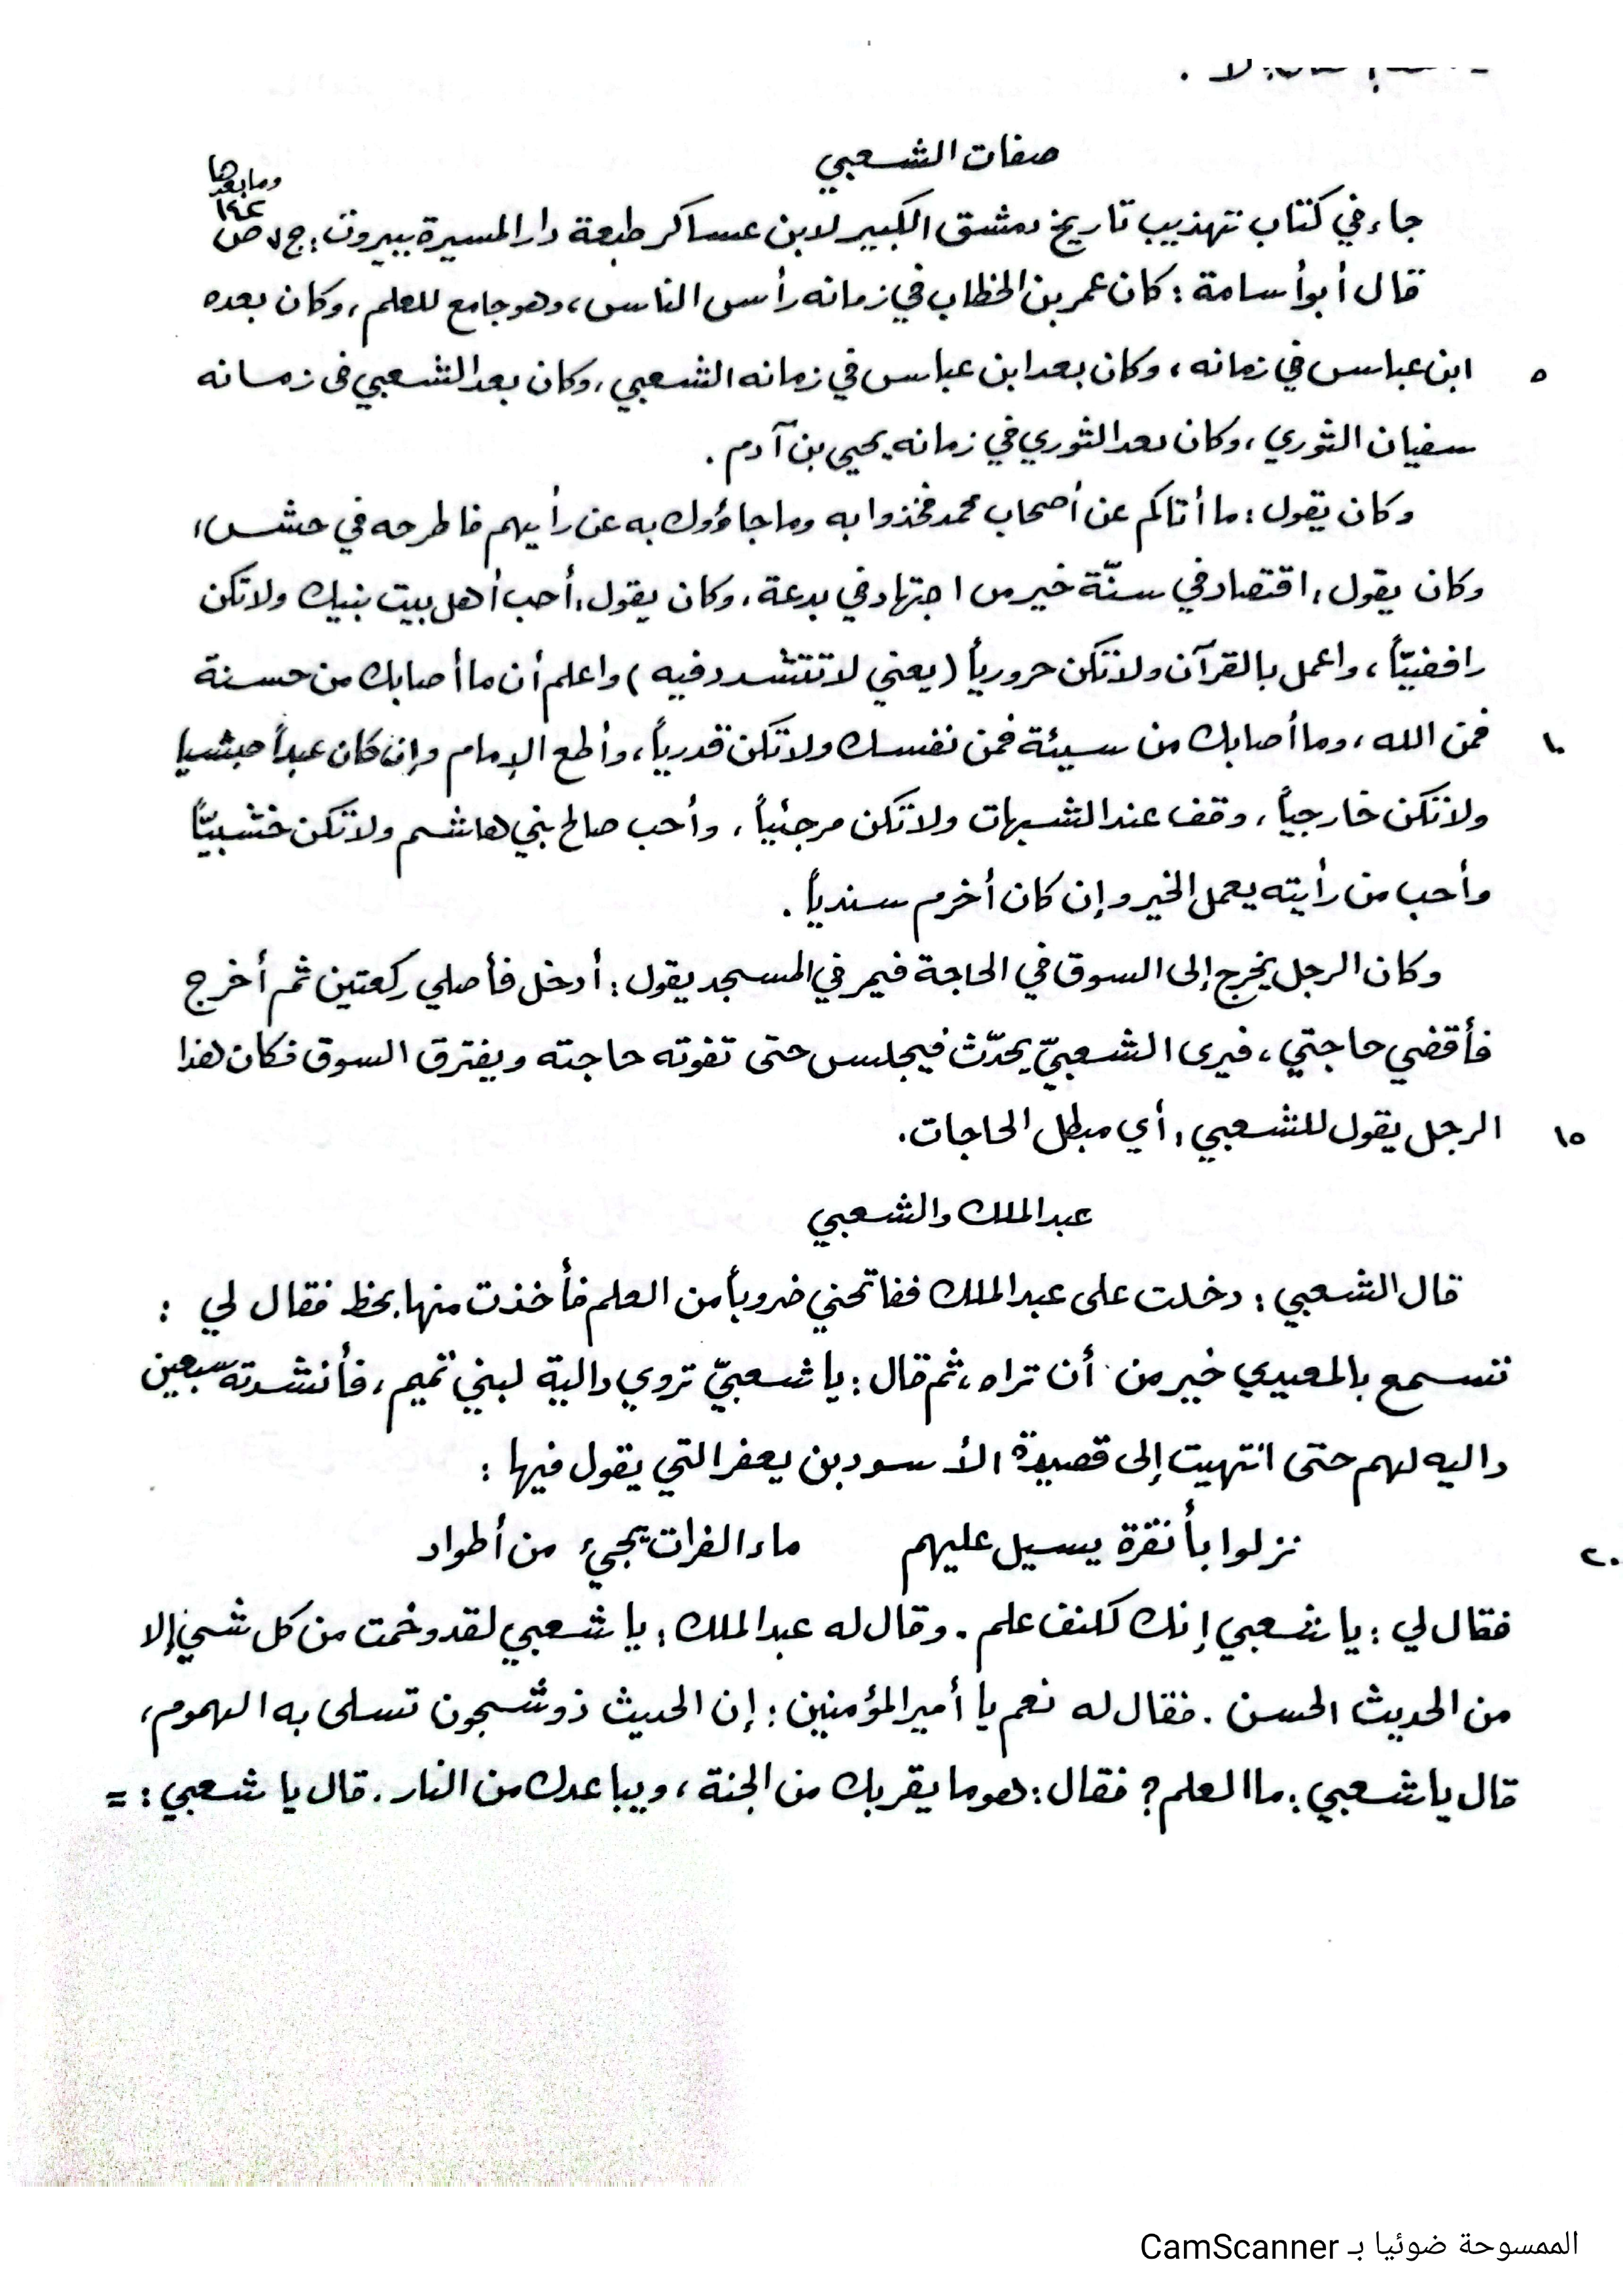 صفات الشعبي
وما بعدها
جاء في كتاب تهذيب تاريخ دمشق الكبير لابن عساكر طبعة دار المسيرة ببيروت : ج ٧ ص ١٤٢
قال أبو أسامة : كان عمر بن الخطاب في زمانه رأس الناس ، وهو جامع للعلم ، وكان بعده
٥ ابن عباس في زمانه ، وكان بعد ابن عباس في زمانه الشعبي ، وكان بعد الشعبي في زمانه
سفيان الثوري ، وكان بعد الثوري في زمانه يحيى بن آدم .
وكان يقول : ما أتاكم عن أصحاب محمد فخذوا به وما جاؤوك به عن رأيهم فاطرحه في حش ،
وكان يقول : اقتصاد في سنّة خير من اجتهاد في بدعة ، وكان يقول : أحب أهل بيت نبيك ولا تكن
رافضيّاً ، واعمل بالقرآن ولا تكن حرورياً ( يعني لا تتشدد فيه ) واعلم أن ما أصابك من حسنة
١٠ فمن الله ، وما أصابك من سيئة فمن نفسك ولا تكن قدرياً ، وأطع الإمام وإن كان عبداً حبشيا
ولا تكن خارجياً ، وقف عند الشبهات ولا تكن مرجئياً ، وأحب صالح بني هاشم ولا تكن خشبيّاً
وأحب من رأيته يعمل الخير وإن كان أخرم سندياً .
وكان الرجل يخرج إلى السوق في الحاجة فيمر في المسجد يقول : أدخل فأصلي ركعتين ثم أخرج
فأقضي حاجتي ، فيرى الشعبيّ يحدّث فيجلس حتى تفوته حاجته ويفترق السوق فكان هذا
١٥ الرجل يقول للشعبي : أي مبطل الحاجات .
عبد الملك والشعبي
قال الشعبي : دخلت على عبد الملك ففاتحني ضروباً من العلم فأخذت منها بحظ فقال لي :
تسمع بالمعيدي خير من أن تراه ، ثم قال : يا شعبيّ تروي دالية لبني تميم ، فأنشدته سبعين
داليه لهم حتى انتهيت إلى قصيدة الأسود بن يعفر التي يقول فيها :
٢٠ نزلوا بأنقرة يسيل عليهم ماء الفرات يجيء من أطواد
فقال لي : يا شعبي إنك لكنف علم . وقال له عبد الملك : يا شعبي لقد وخمت من كل شيء إلا
من الحديث الحسن . فقال له نعم يا أمير المؤمنين : إن الحديث ذو شجون تسلى به الهموم ،
قال يا شعبي : ما العلم ؟ فقال : هو ما يقربك من الجنة ، ويباعدك من النار . قال يا شعبي : =
الممسوحة ضوئيا بـ CamScanner